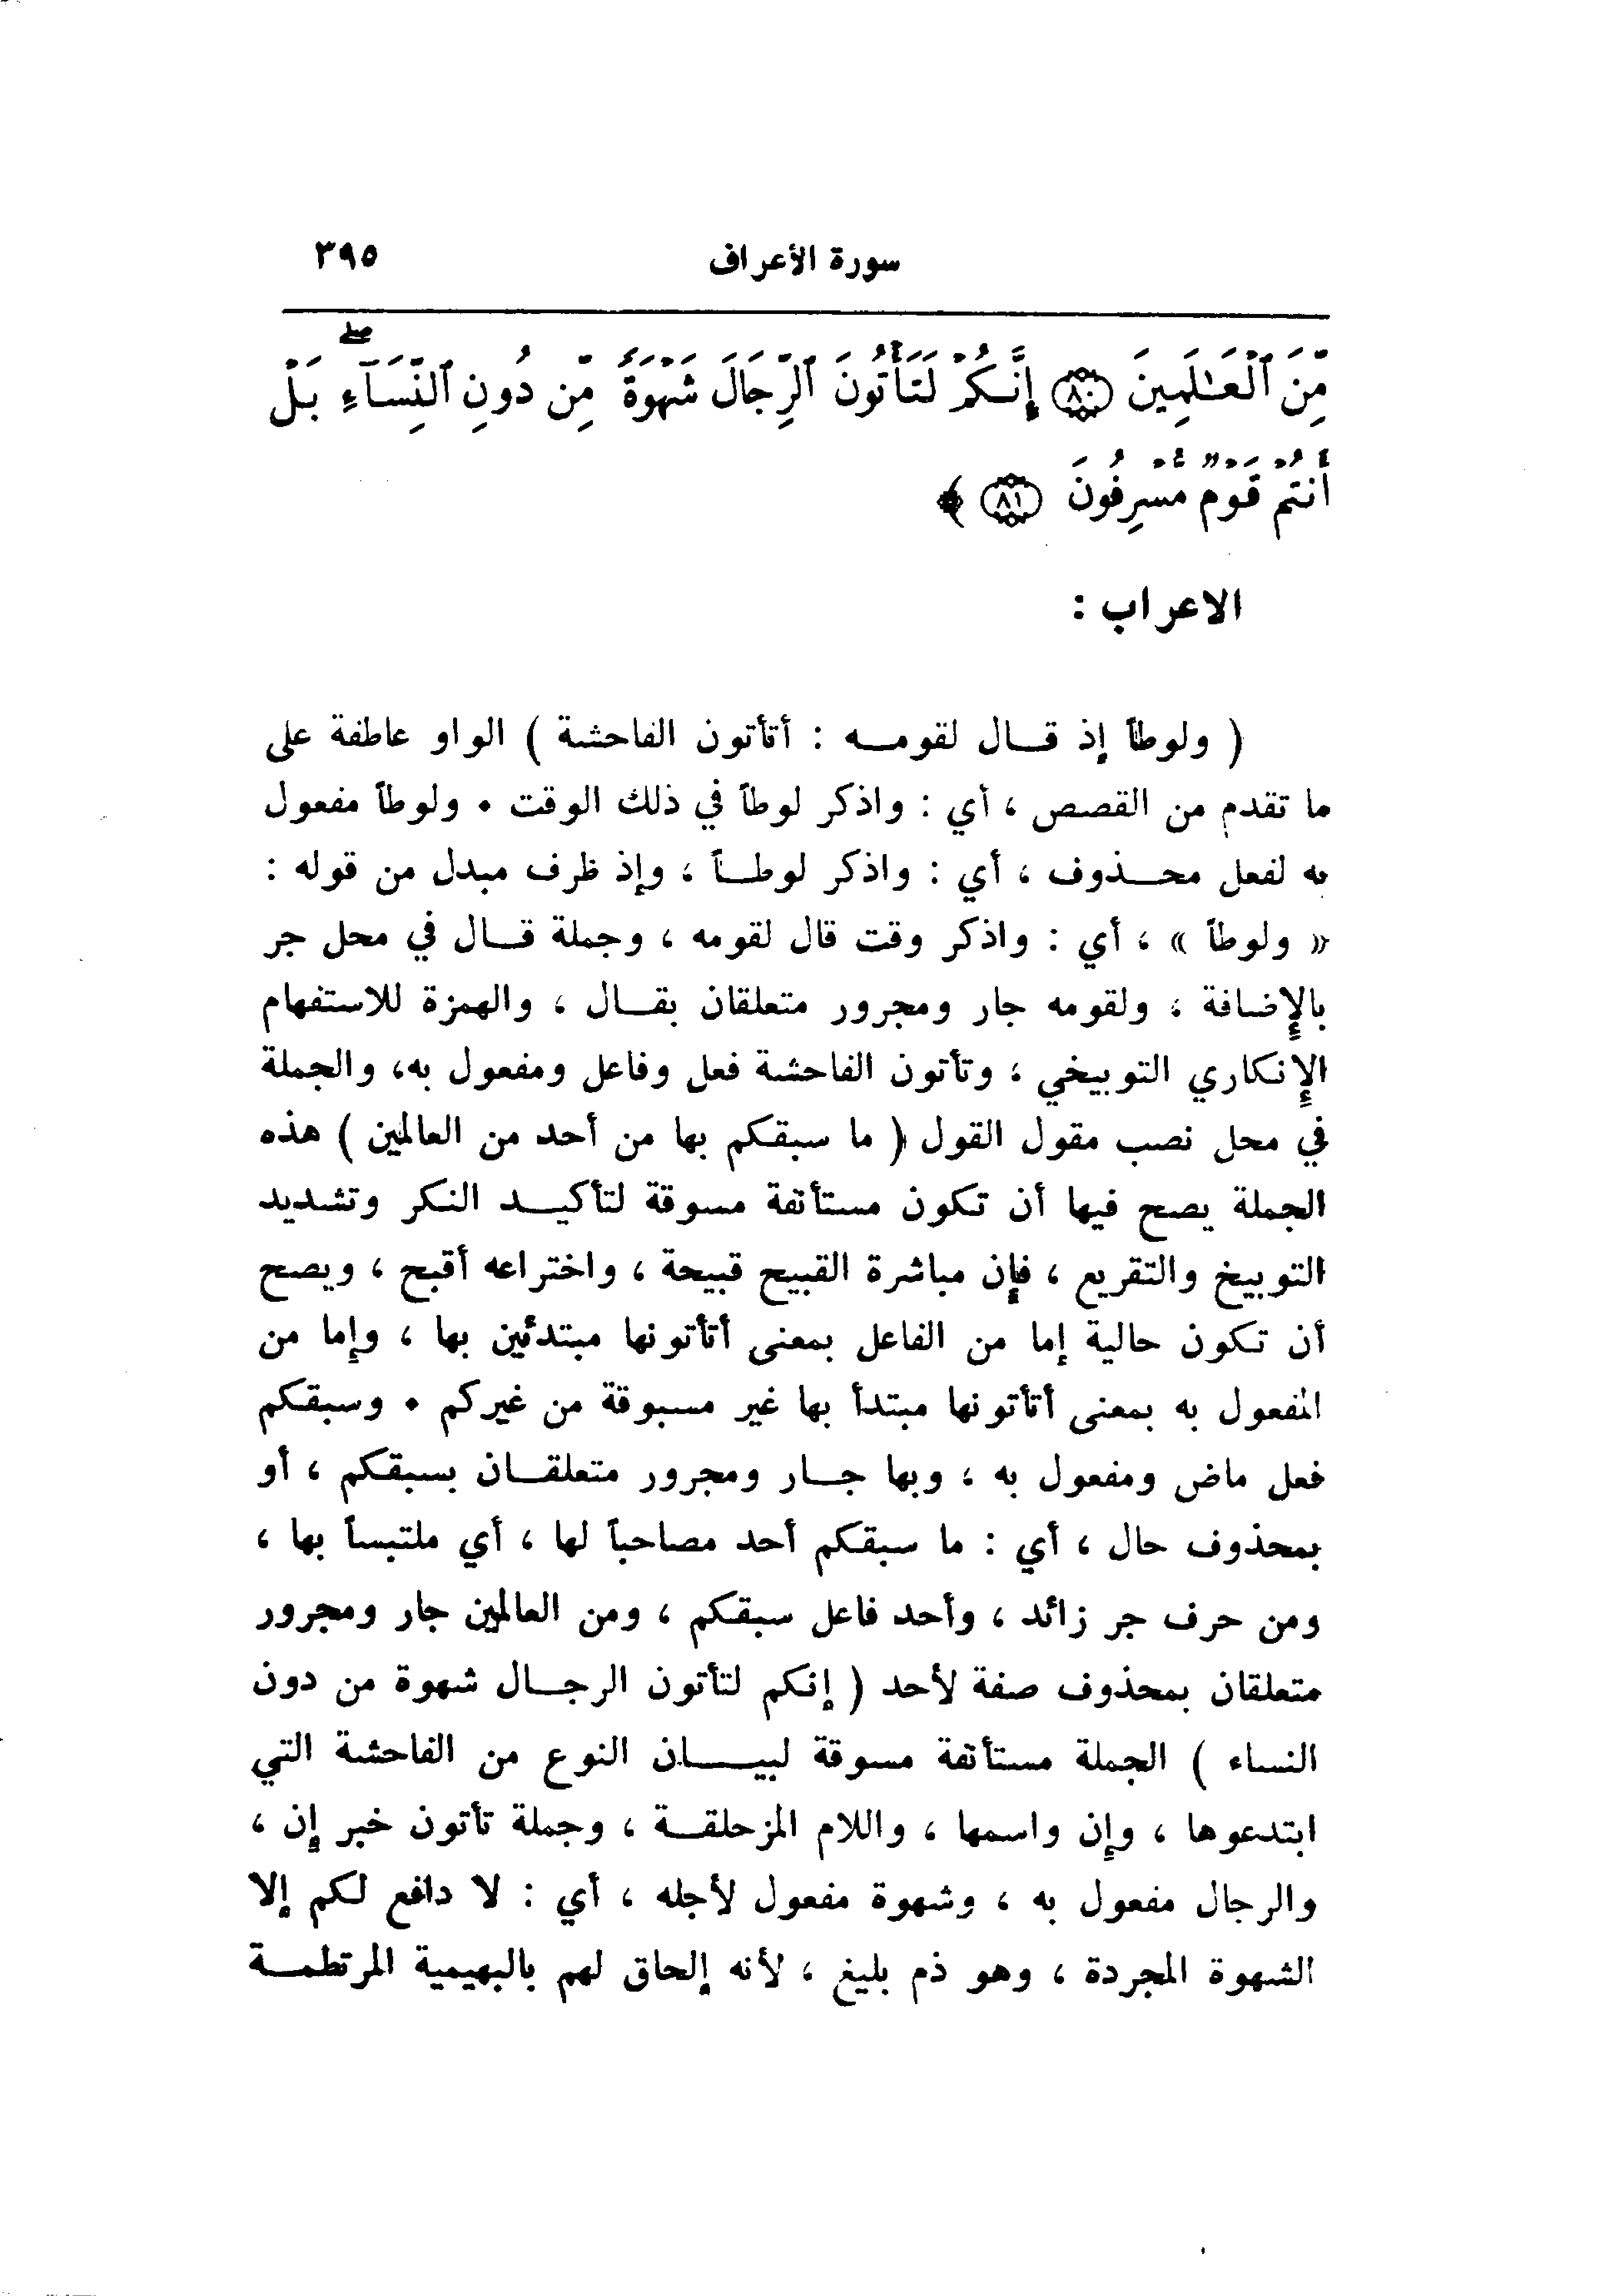 سورة الأعراف ٣٩٥
مِّنَ ٱلْعَـٰلَمِينَ ﴿٨٠﴾ إِنَّكُمْ لَتَأْتُونَ ٱلرِّجَالَ شَهْوَةً مِّن دُونِ ٱلنِّسَآءِ ۖ بَلْ
أَنتُمْ قَوْمٌ مُّسْرِفُونَ ﴿٨١﴾ ﴾
الاعراب :
( ولوطاً إذ قــال لقومــه : أتأتون الفاحشة ) الواو عاطفة على
ما تقدم من القصص ، أي : واذكر لوطاً في ذلك الوقت . ولوطاً مفعول
به لفعل محــذوف ، أي : واذكر لوطــاً ، وإذ ظرف مبدل من قوله :
« ولوطاً » ، أي : واذكر وقت قال لقومه ، وجملة قــال في محل جر
بالإضافة ، ولقومه جار ومجرور متعلقان بقــال ، والهمزة للاستفهام
الإنكاري التوبيخي ، وتأتون الفاحشة فعل وفاعل ومفعول به، والجملة
في محل نصب مقول القول ( ما سبقكم بها من أحد من العالمين ) هذه
الجملة يصح فيها أن تكون مستأنفة مسوقة لتأكيــد النكر وتشديد
التوبيخ والتقريع ، فإن مباشرة القبيح قبيحة ، واختراعه أقبح ، ويصح
أن تكون حالية إما من الفاعل بمعنى أتأتونها مبتدئين بها ، وإما من
المفعول به بمعنى أتأتونها مبتدأ بها غير مسبوقة من غيركم . وسبقكم
فعل ماض ومفعول به ، وبها جــار ومجرور متعلقــان بسبقكم ، أو
بمحذوف حال ، أي : ما سبقكم أحد مصاحباً لها ، أي ملتبساً بها ،
ومن حرف جر زائد ، وأحد فاعل سبقكم ، ومن العالمين جار ومجرور
متعلقان بمحذوف صفة لأحد ( إنكم لتأتون الرجــال شهوة من دون
النساء ) الجملة مستأنفة مسوقة لبيــــان النوع من الفاحشة التي
ابتدعوها ، وإن واسمها ، واللام المزحلقــة ، وجملة تأتون خبر إن ،
والرجال مفعول به ، وشهوة مفعول لأجله ، أي : لا دافع لكم إلا
الشهوة المجردة ، وهو ذم بليغ ، لأنه إلحاق لهم بالبهيمية المرتطمــة